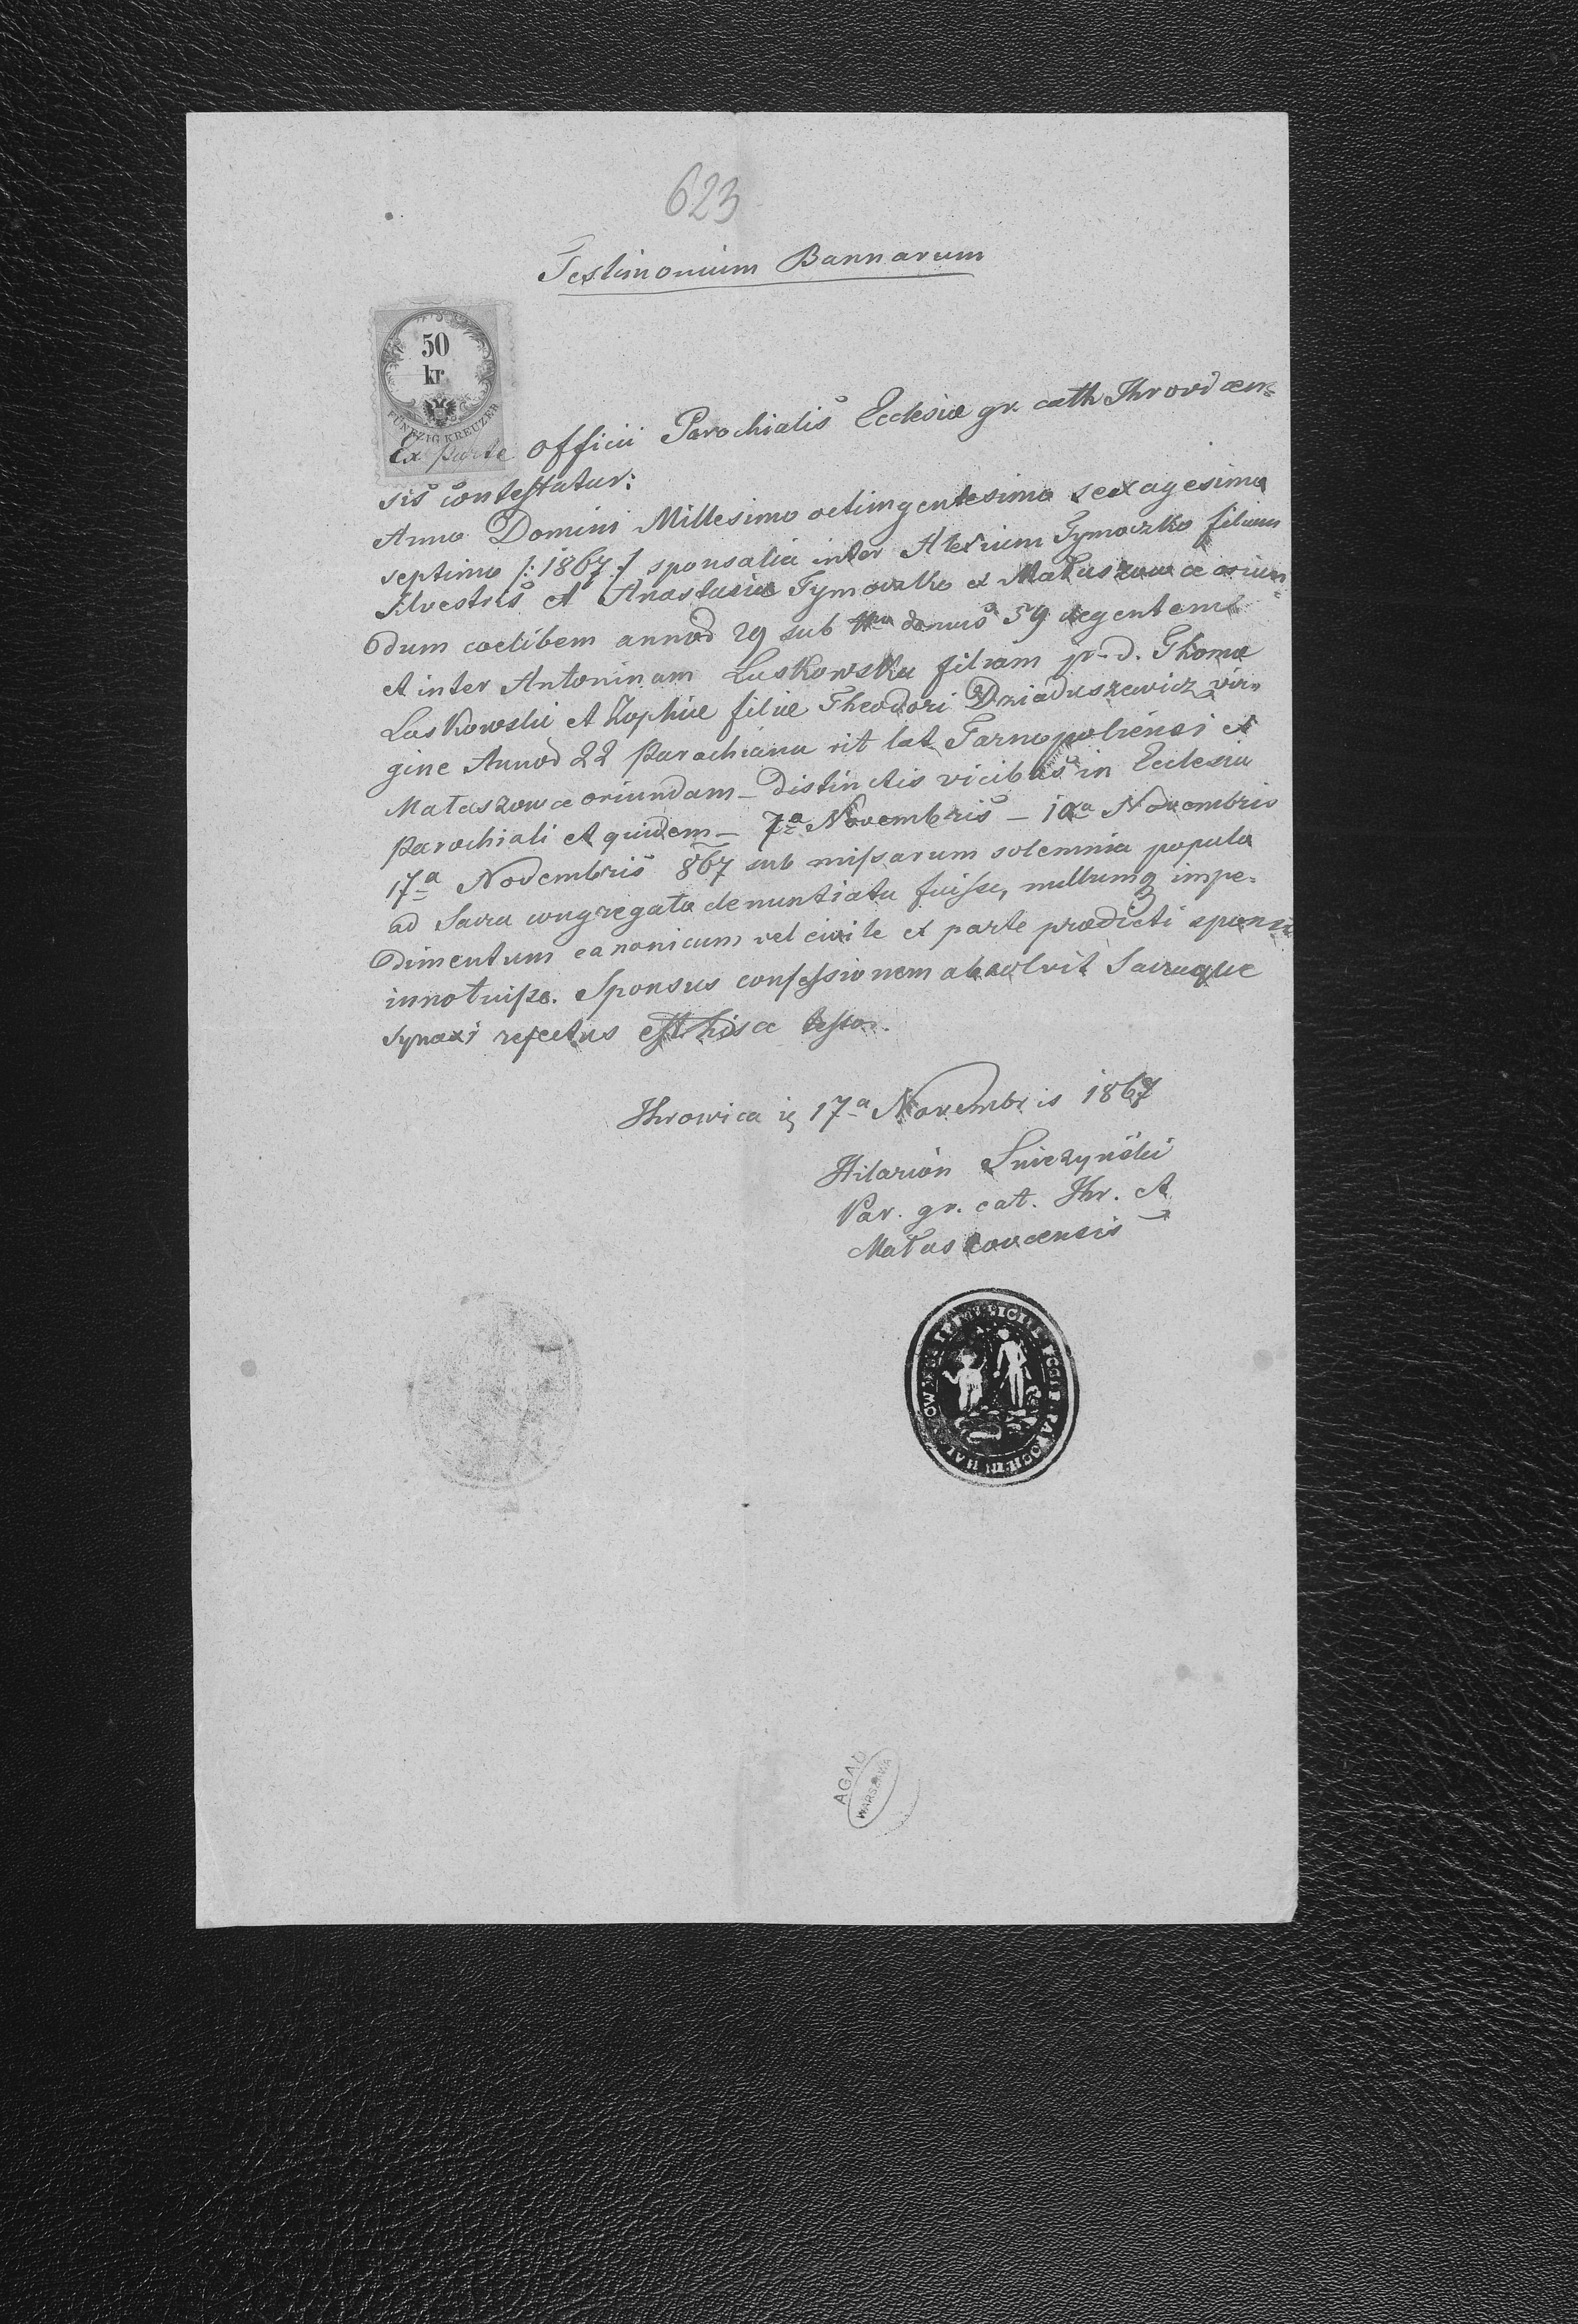 623
Testimonium Bannarum
50
kr.
FÜNFZIG KREUZER
Ex parte officii Parochialis Ecclesiæ gr. cath Ihrovicen=
sis contestatur:
Anno Domini Millesimo octingentesimo sexagesimo
septimo /: 1867 :/ sponsalia inter Alexium Tymoczko filium
Silvestris et Anastasiæ Tymoczko ex Mataszowce oriun=
dum coelibem annor 29 sub Nro domus 59 degentem
et inter Antoninam Laskowska filiam p. d. Thomæ
Laskowski et Zophiæ filiæ Theodori Dzieduszewicz vir=
gine Annor 22 Parochiana rit lat Tarnopoliensi ex
Mataszowce oriundam – distinctis vicibus in Ecclesia
parochiali et quidem – 7a Novembris – 10a Novembris
17a Novembris 867 sub missarum solemnia populo
ad Sacra congregato denuntiata fuisse, nullumq impe=
dimentum canonicum vel civile ex parte prædicti sponsi
innotuisse. Sponsus confessionem absolvit Sacraque
Synaxi refectus est hisce testor.
Ihrowica 17a Novembris 1867
Hilarion Sniezyński
Par. gr. cat. Ihr. et
Mataszowcensis
AGAD
WARSZAWA